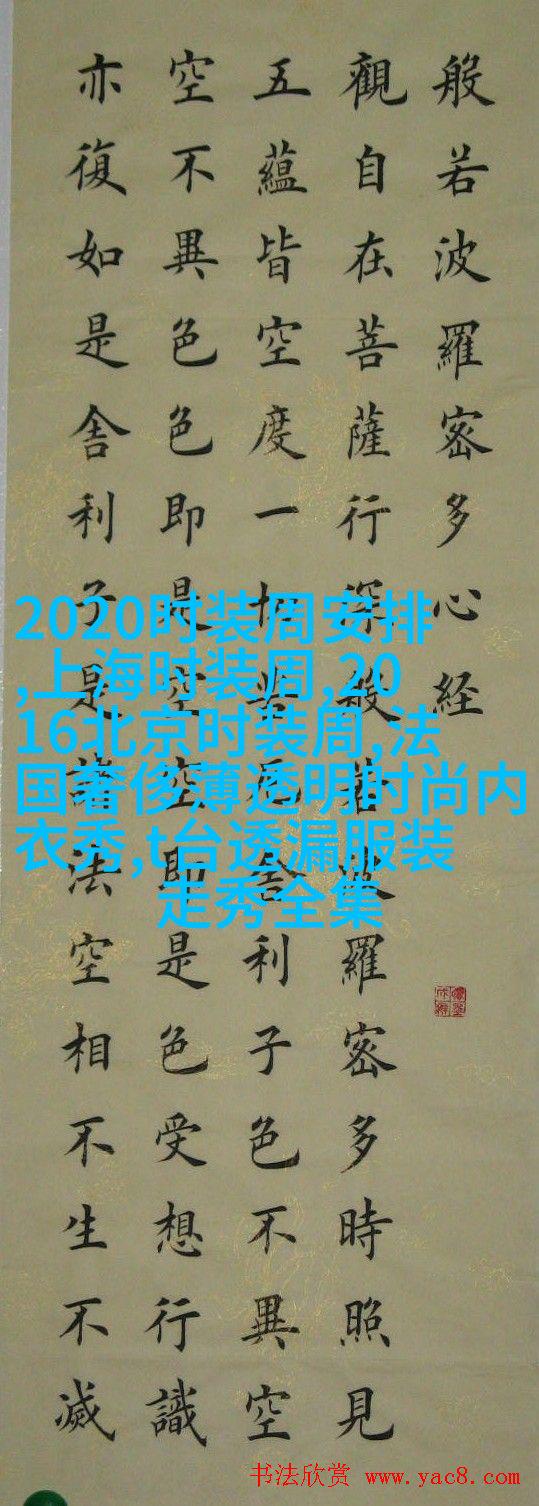 般若波羅密多心経
觀自在菩薩行深般若波羅密多時照見
五蘊皆空度一切苦厄舍利子色不異空
空不異色色即是空空即是色受想行識
亦復如是舍利子是諸法空相不生不滅
2020时装周安排
,上海时装周,20
16北京时装周,法
国奢侈薄透明时尚内
衣秀,t台透漏服装
走秀全集
书法欣赏 www.yac8.com